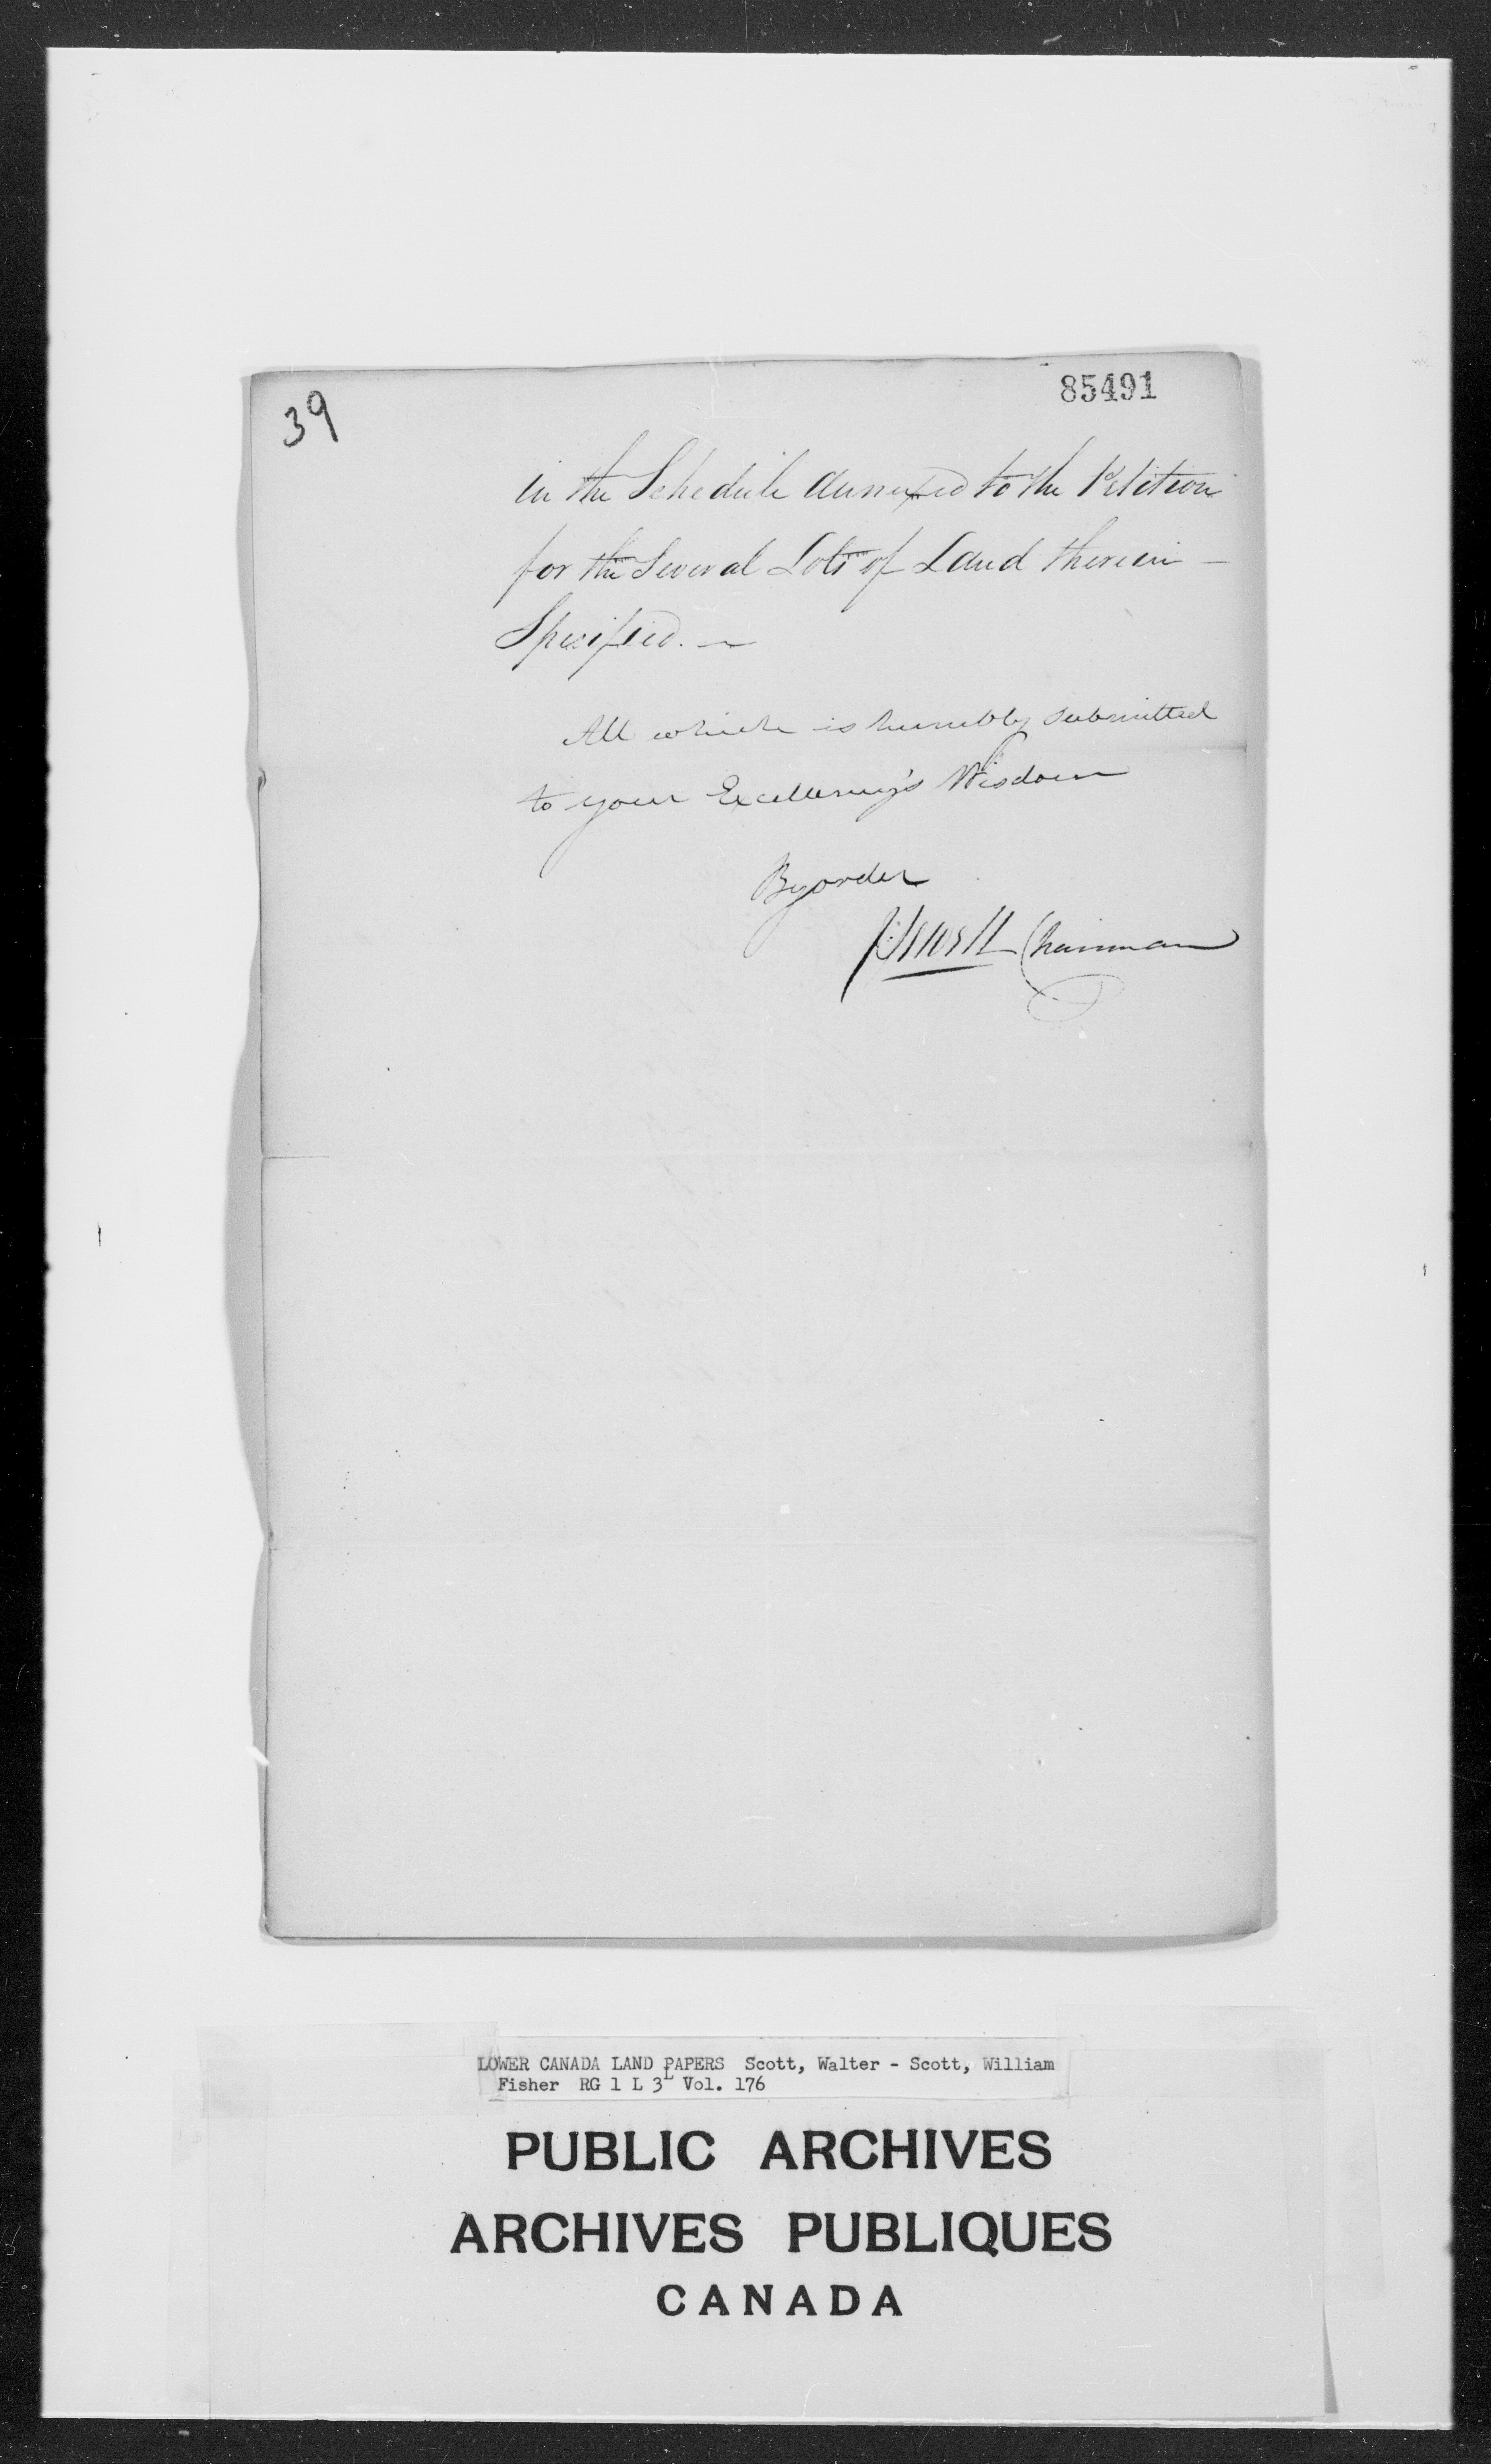 39
85491
in the Schedule annexed to the Petition
for the Several Lots of Land therein —
Specified. —
All which is humbly submitted
to your Excellency's Wisdom
By order
J: Sewell Chairman
LOWER CANADA LAND PAPERS Scott, Walter - Scott, William
Fisher RG 1 L 3L Vol. 176
PUBLIC ARCHIVES
ARCHIVES PUBLIQUES
CANADA